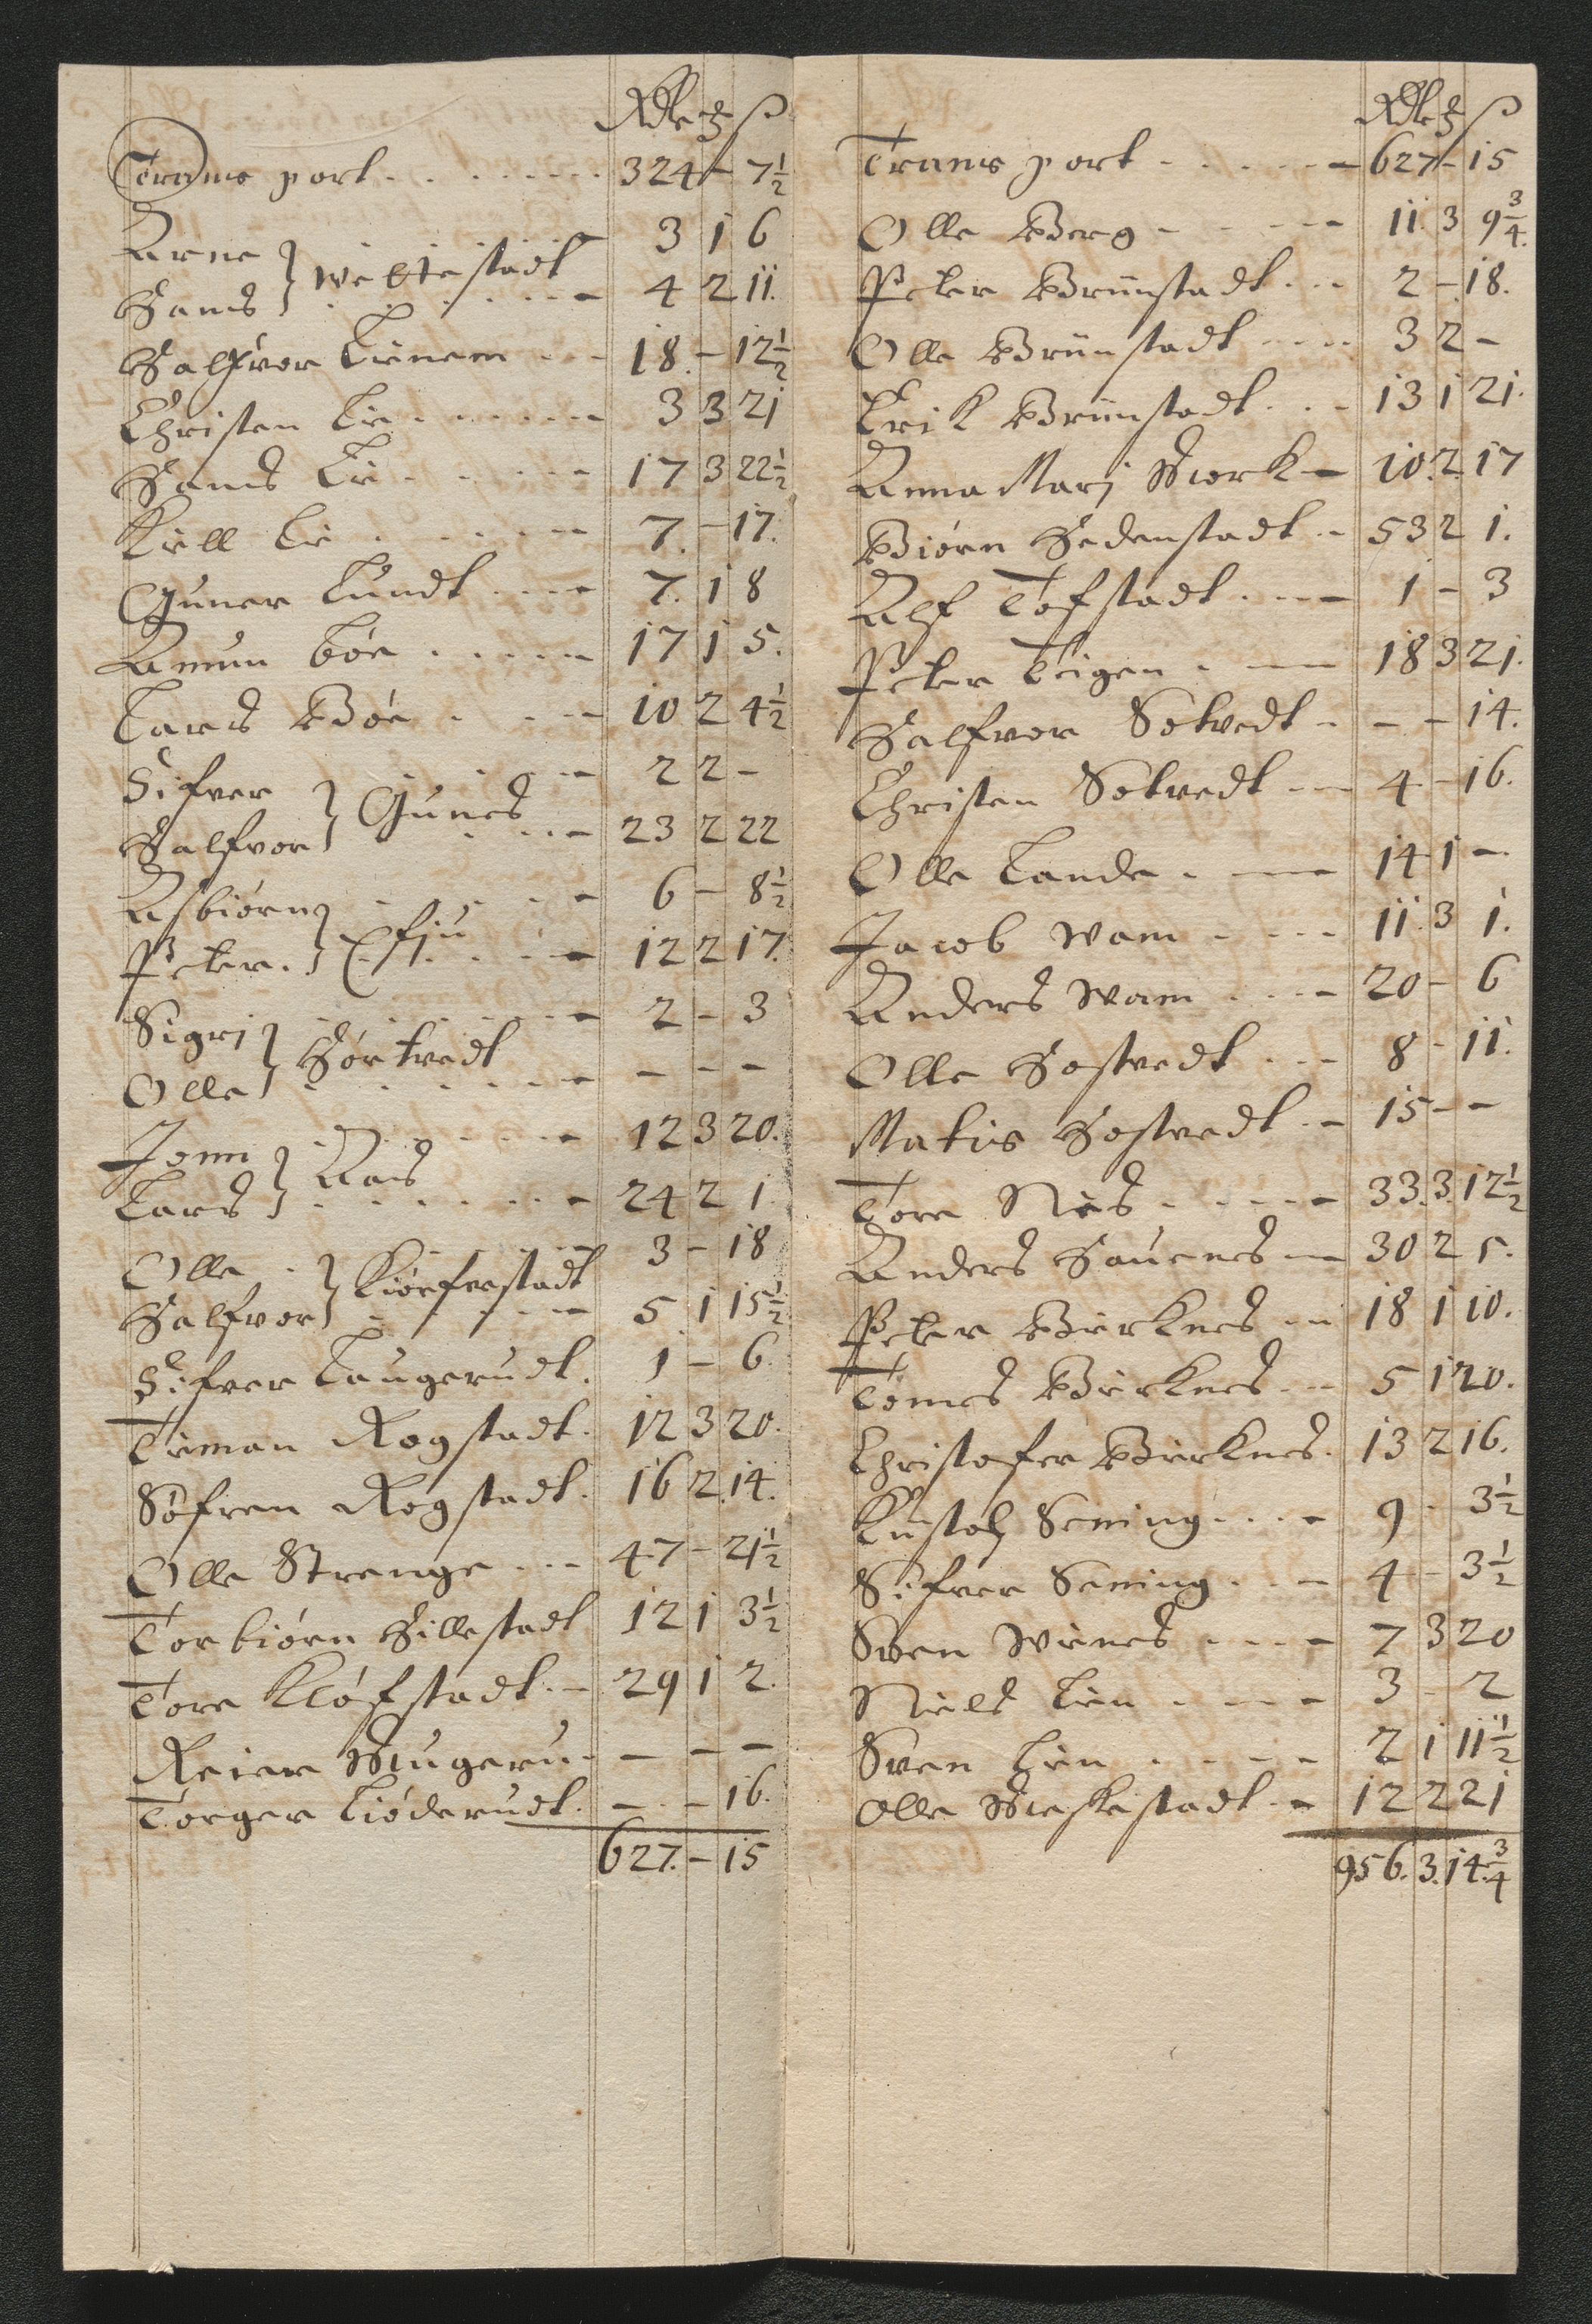 Rdlr ß
Trans port - - - - - - 324 - 7½
Arne } weltestadt 3 1 6
Hans } - - - 4 2 11.
Halfwor Lienem - - 18. - 12½
Christen Lie - - - - 3 3 21
Hans Lie - - - - 17 3 22½
Kiell Lie - - - - 7. - 17.
Guner Lundt - - - 7. 1 8
Amun Böe - - - - 17 1 5.
Lars Böe - - - - 10 2 4½
Sifver } Gunes - - 2 2 -
Halfvor } - - - 23 2 22
Asbiørn } - - - 6 - 8½
Peter. } - - - 12 2 17.
Sigrj } Hørtvedt - - - 2 - 3
Olle } - - - - - -
Jonn } Aas - - - 12 3 20.
Lars } - - - 24 2 1
Olle } Kiørfvestadt 3 - 18
Halfvor } - - - 5 1 15½
Sifver Laugerudt. 1 - 6.
Tieman Rogstadt. 12 3 20.
Søfren Rogstadt. 16 2. 14.
Olle Strenge - - - 47 - 21½
Torbiørn Hillestadt 12 1 3½
Tore Kløfstadt - - 29 1 2.
Reier Mugeru - - - -
Torger Liøderudt. - - 16.
627. - 15
Rdlr ß
Trans port - - - - - 627 - 15
Olle Berg - - - - 11 3 9¾.
Peter Brünstadt - - 2 - 18.
Olle Brünstadt - - - 3 2 -
Erik Brünstadt - - - 13 1 21.
Anna Marj Mørk - 10. 2 17
Biørn Hedenstadt - 53 2 1.
Alf Tofstadt - - - 1 - 3
Peter Teigen - - - 18 3 21.
Halfvor Søtvedt - - - 14.
Christen Søtvedt - - 4 - 16.
Olle Lande - - - 14 1 -
Jacob wam - - - 11. 3 1.
Anders wam - - - 20 - 6
Olle Hostvedt - - - 8 - 11.
Matis Hostvedt - - 15 - -
Tore Nes - - - - 33. 3. 12½
Anders Hauenes - 30 2 5.
Peter Birknes - - 18 1 10.
Tomes Birknes - - 5 1 20.
Christofer Birknes. 13 2 16.
Sening - - - 9 - 3½
Sifver Sening - - - 4 - 3½
Swen wines - - - 7 3 20
Niels Lien - - - 3 - 2
Swen Lien - - - - 2 1 11½
Olle Meskestadt - - 12 2 21
956. 3. 14.¾